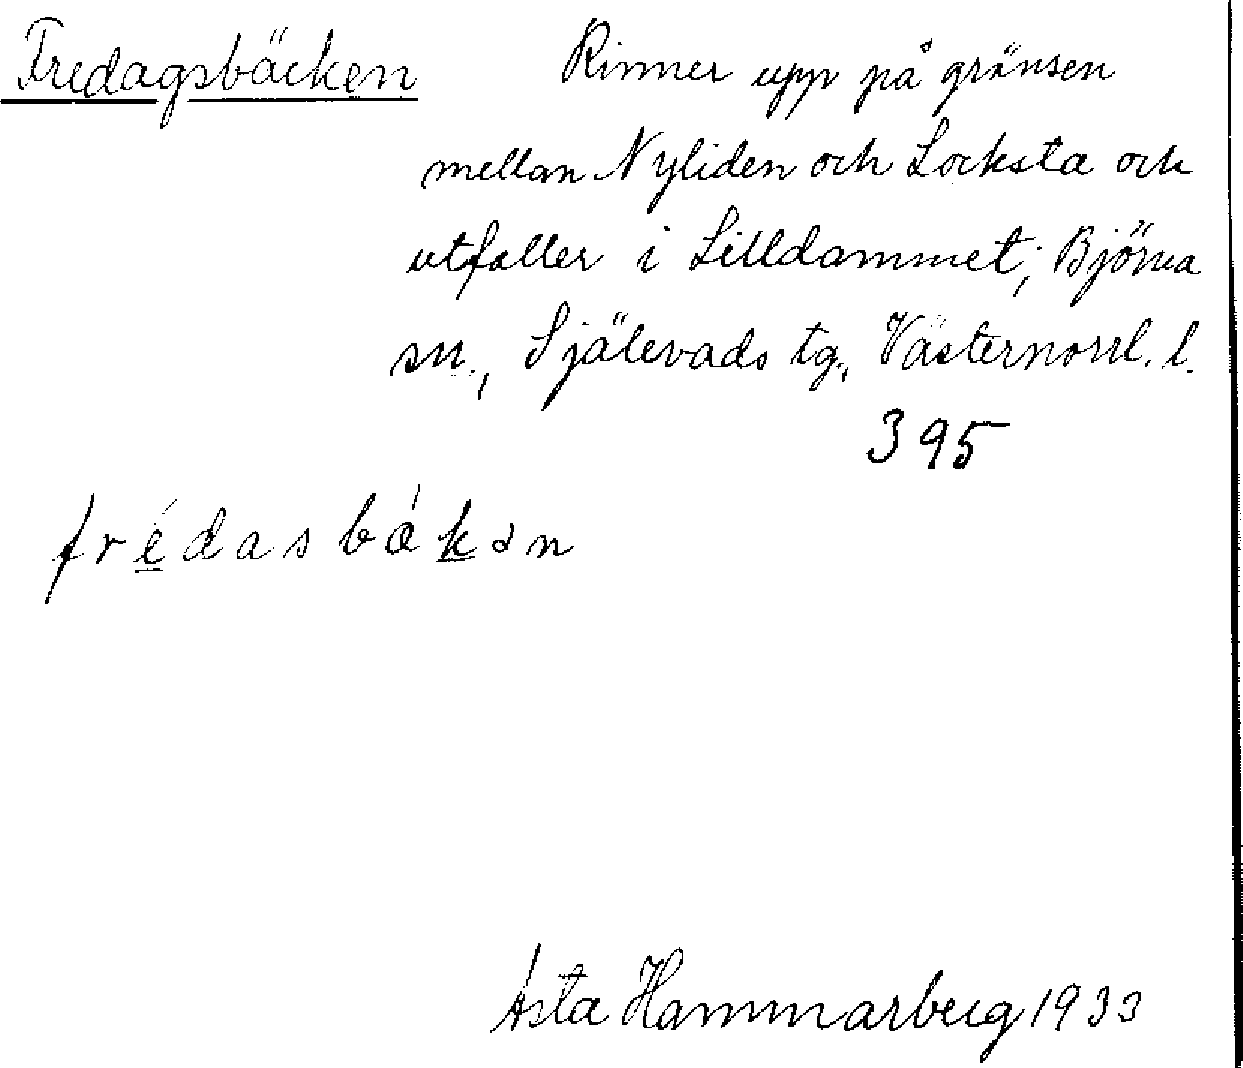 Fredagsbäcken Rinner upp på gränsen
mellan Nyliden och Locksta och
utfaller i Lilldammet; Björna
sn., Själevads tg., Västernorrl. l.
395
frédasbákən
Asta Hammarberg 1933